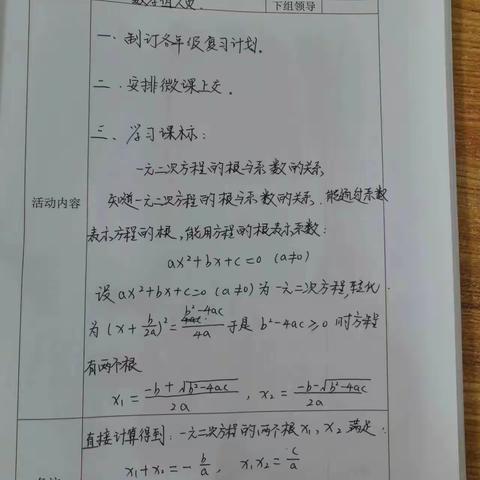 下组领导
一、制订各年级复习计划.
二、安排微课上交.
三、学习课标:
一元二次方程的根与系数的关系
知道一元二次方程的根与系数的关系.能通过系数
活动内容
表示方程的根,能用方程的根表示系数:
ax²+bx+c=0 (a≠0)
设 ax²+bx+c=0 (a≠0) 为一元二次方程,转化
为 (x+b/2a)²=(b²-4ac)/4a 于是 b²-4ac≥0 时方程
有两个根
x₁=(-b+√(b²-4ac))/2a , x₂=(-b-√(b²-4ac))/2a
直接计算得到:一元二次方程的两个根x₁,x₂ 满足:
x₁+x₂=-b/a, x₁x₂=c/a